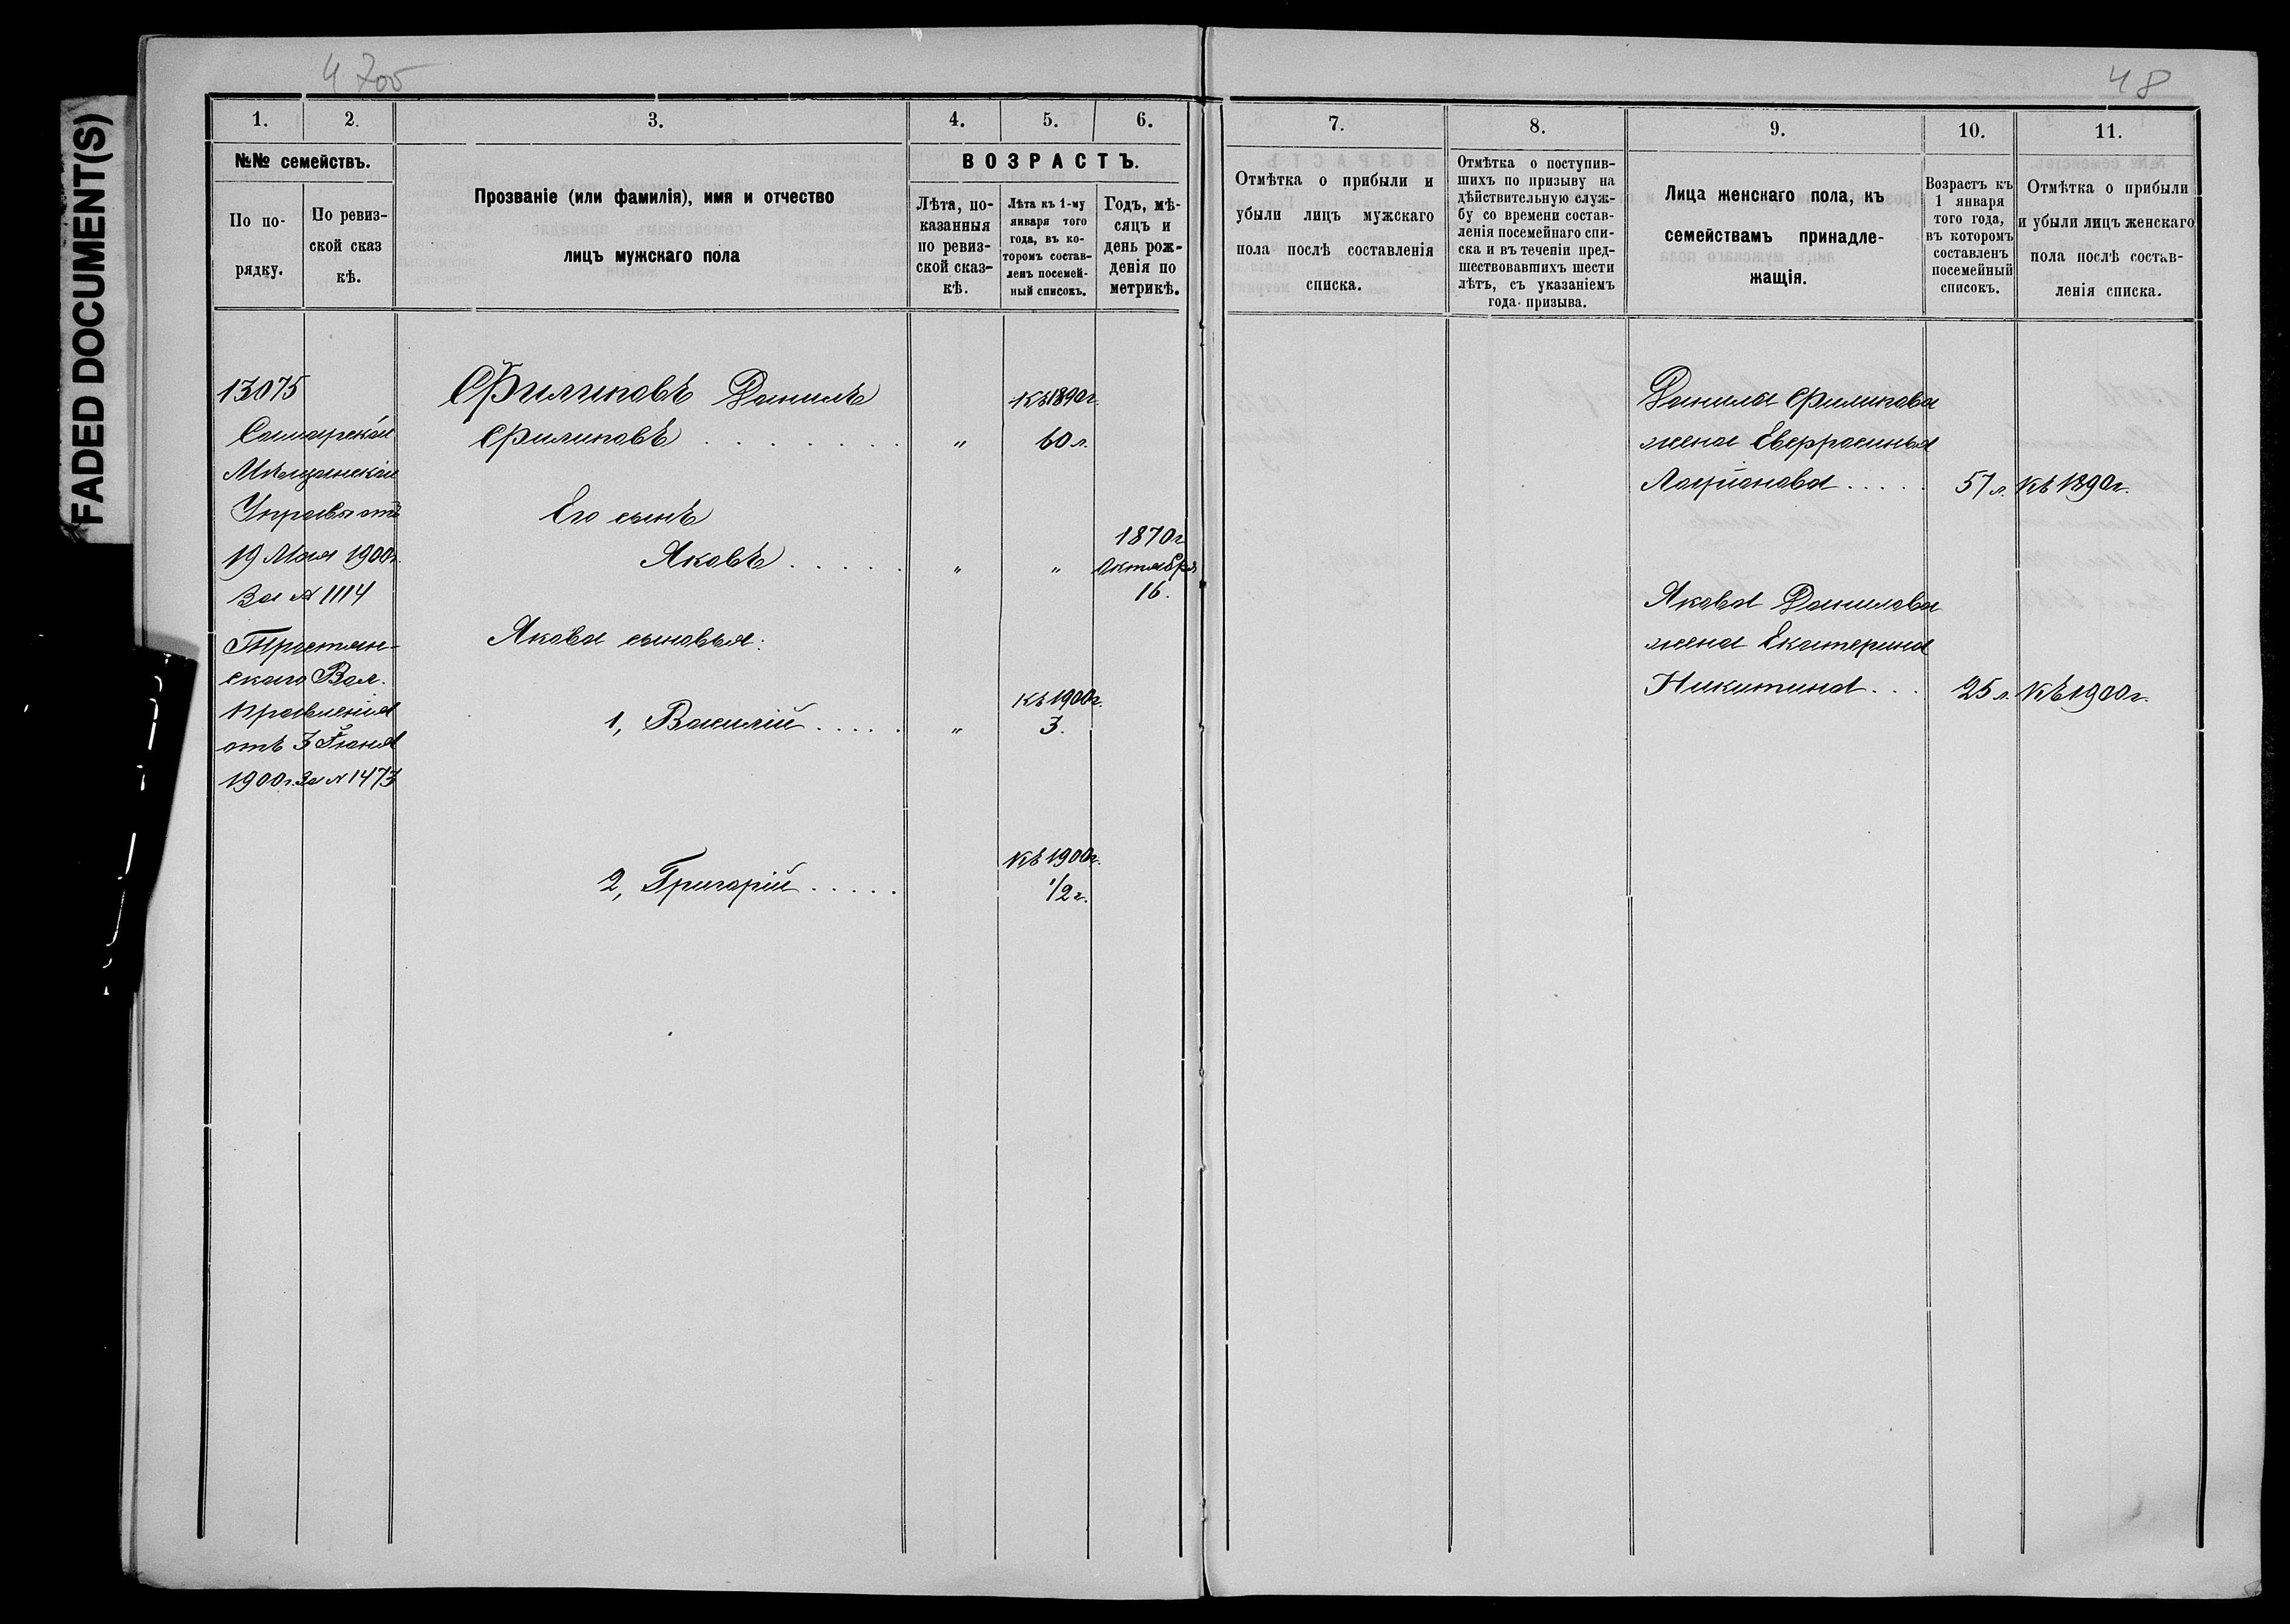 FADED DOCUMENT(S)
4 705
48
1. 2. 3. 4. 5. 6.
№№ семействъ.
По по-
рядку.
По ревиз-
ской сказ
кѣ.
Прозваніе (или фамилія), имя и отчество
лицъ мужскаго пола
ВОЗРАСТЪ.
Лѣта, по-
казанныя
по ревиз-
ской сказ-
кѣ.
Лѣта къ 1-му
января того
года, въ ко-
торомъ состав-
ленъ посемей-
ный списокъ.
Годъ, мѣ-
сяцъ и
день рож-
денія по
метрикѣ.
7. 8. 9. 10. 11.
Отмѣтка о прибыли и
убыли лицъ мужскаго
пола послѣ составленія
списка.
Отмѣтка о поступив-
шихъ по призыву на
дѣйствительную служ-
бу со времени состав-
ленія посемейнаго спи-
ска и въ теченіи пред-
шествовавшихъ шести
лѣтъ, съ указаніемъ
года призыва.
Лица женскаго пола, къ
семействамъ принадле-
жащія.
Возрастъ къ
1 января
того года,
въ которомъ
составленъ
посемейный
списокъ.
Отмѣтка о прибыли
и убыли лицъ женскаго
пола послѣ состав-
ленія списка.
13075
Самарской
Мѣщанской
Управы отъ
19 Мая 1900г.
За № 1114
Тростян-
скаго Вол.
правленія
отъ 3 Іюня
1900г. За № 1473
Филиповъ Данилъ
Къ 1890г.
Филиповъ . . . . . . . . . „ 60 л.
Его сынъ
1870г
Яковъ . . . . . „ „ Октября
16.
Якова сыновья:
Къ 1900г.
1, Василій . . . . . „ 3.
Къ 1900г.
2, Григорій . . . . . 1/2 г.
Данила Филипова
жена Евфросинья
Ларионова . . . . . 57 л. Къ 1890г.
Якова Данилова
жена Екатерина
Никитина . . . 25 л. Къ 1900г.